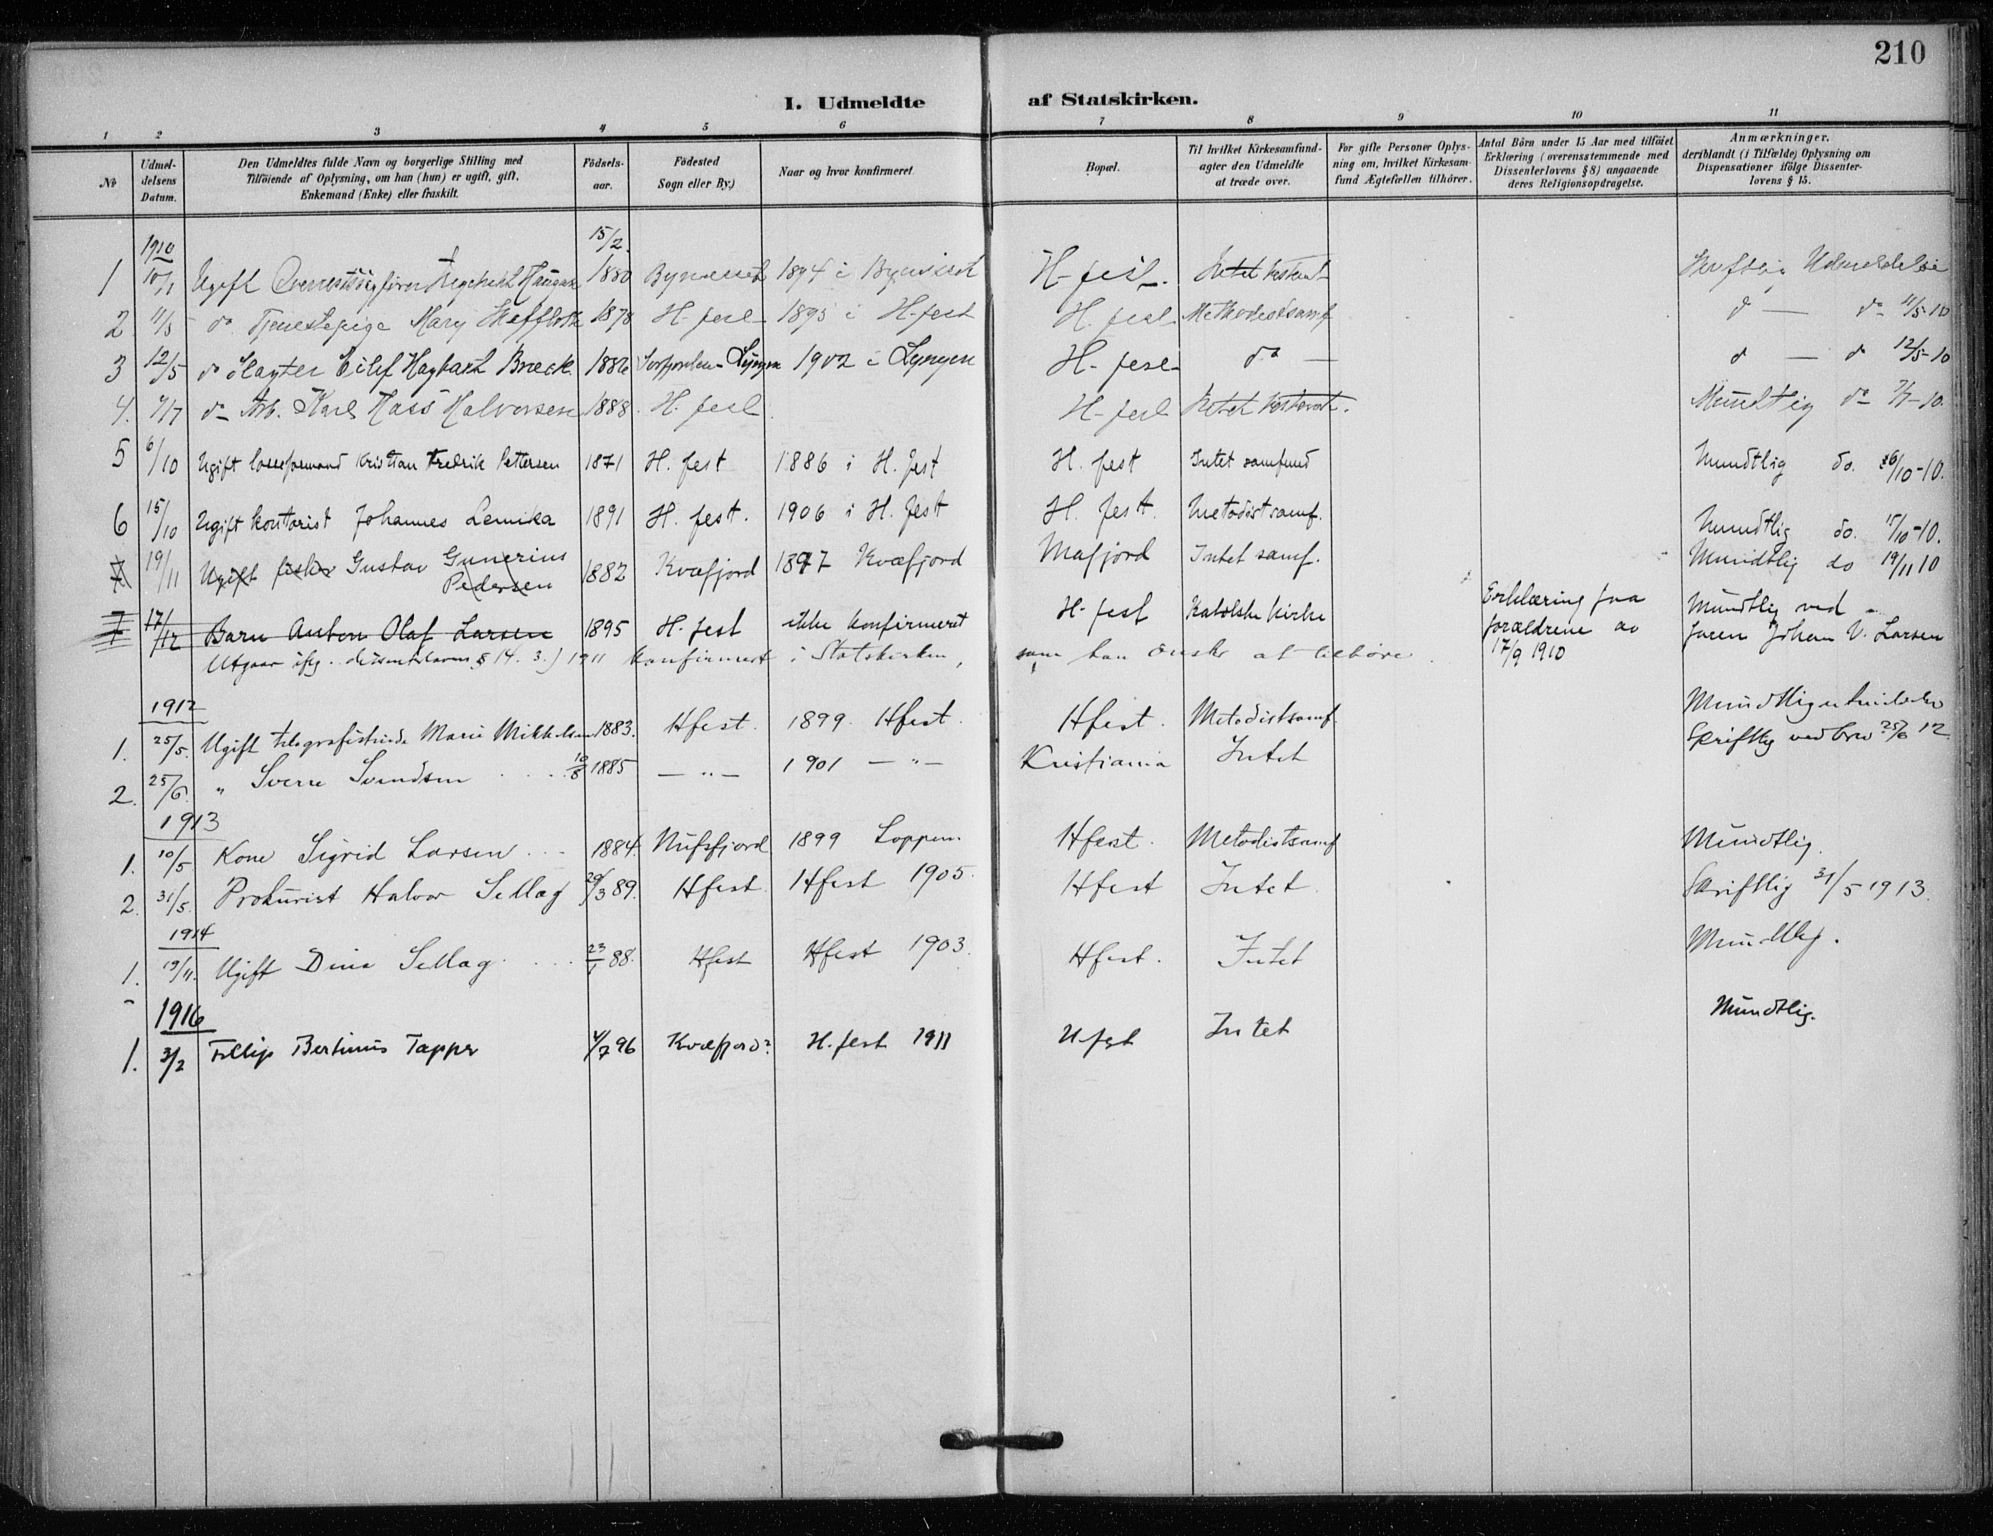 210
I. Udmeldte af Statskirken.
1 2 3 4 5 6 7 8 9 10 11
№
Udmeldelsens Datum.
Den Udmeldtes fulde Navn og borgerlige Stilling med
Tilföiende af Oplysning, om han (hun) er ugift, gift,
Enkemand (Enke) eller fraskilt.
Födselsaar.
Födested
Sogn eller By.)
Naar og hvor konfirmeret
Bopæl.
Til hvilket Kirkesamfund agter den Udmeldte at træde over.
For gifte Personer Oplysning om, hvilket Kirkesamfund Ægtefællen tilhörer.
Antal Börn under 15 Aar med tilföiet
Erklæring (overensstemmende med
Dissenterlovens § 8) angaaende
deres Religionsopdragelse.
Anmærkninger.
deriblandt (i Tilfælde) Oplysning om
Dispensationer ifölge Dissenterlovens § 15.
1910 15/2
1 10/1 Ugift 1880 Bynesset 1894 i Bynesset H-fest. Intet Udmeldelse
2 11/5 do Tjenestepige Mary 1878 H-fest 1893 i H-fest H. fest Methodistsamf d — do 11/5-10
3 12/5 do Slagter Eilef Hagbart Breck 1886 Sorfjorden-Lyngen 1902 i Lyngen H-fest do — d — do 12/5-10
4. 7/7 do Arb. Karl Hass Halvorsen 1888. H. fest H-fest Intet Mundtlig do 7/7-10.
5 6/10 Ugift losseformand Kristian Fredrik Pettersen 1871 H. fest 1886 i H. fest H. fest Intet samfund Mundtlig do. 6/10-10.
6 15/10 Ugift kontorist Johannes Lemika 1891 H. fest. 1906 i H. fest H. fest. Metodistsamf. Mundtlig do. 15/10-10.
7 19/11 Ugift fisker Gustav Gunerius Pedersen 1882 Kvæfjord 1897 Kvæfjord Mafjord Intet samf. Mundtlig do 19/11 10
7 17/12 Barn Anton Olaf Larsen 1895 H-fest ikke konfirmeret H-fest Katolske kirke Erklæring fra forældrene av 17/9 1910 Mundtlig ved faren Johan V. Larsen
Utgaar ifg. dissenterloven § 14. 3.) 1911 konfirmert i Statskirken, som han ønsker at tilhøre.
1912
1. 25/5. Ugift telegrafistinde Marie Mikkelsen 1883. Hfest. 1899. Hfest. Hfest. Metodistsamf. Mundtlig
2. 25/6. " Sverre Svendsen 10/8 1885 — " — 1901 — " — Kristiania Intet Skriftlig ved brev 25/6 12
1913
1. 10/5 Kone Sigrid Larsen 1884. Nufsfjord 1899 Loppen. Hfest. Metodistsamf Mundtlig.
2. 31/5. Prokurist Halvor Sellæg 29/3 89. Hfest. Hfest 1905. Hfest Intet. Skriftlig 31/5 1913.
1914
1. 19/11. Ugift Dina Sellæg 23/1 88. Hfest Hfest 1903. Hfest. Intet Mundtlig.
1916
1. 3/2 Fillip Bertinus Tapper 4/7 96 Kvæfjord? H. fest 1911 H-fest Intet Mundtlig.